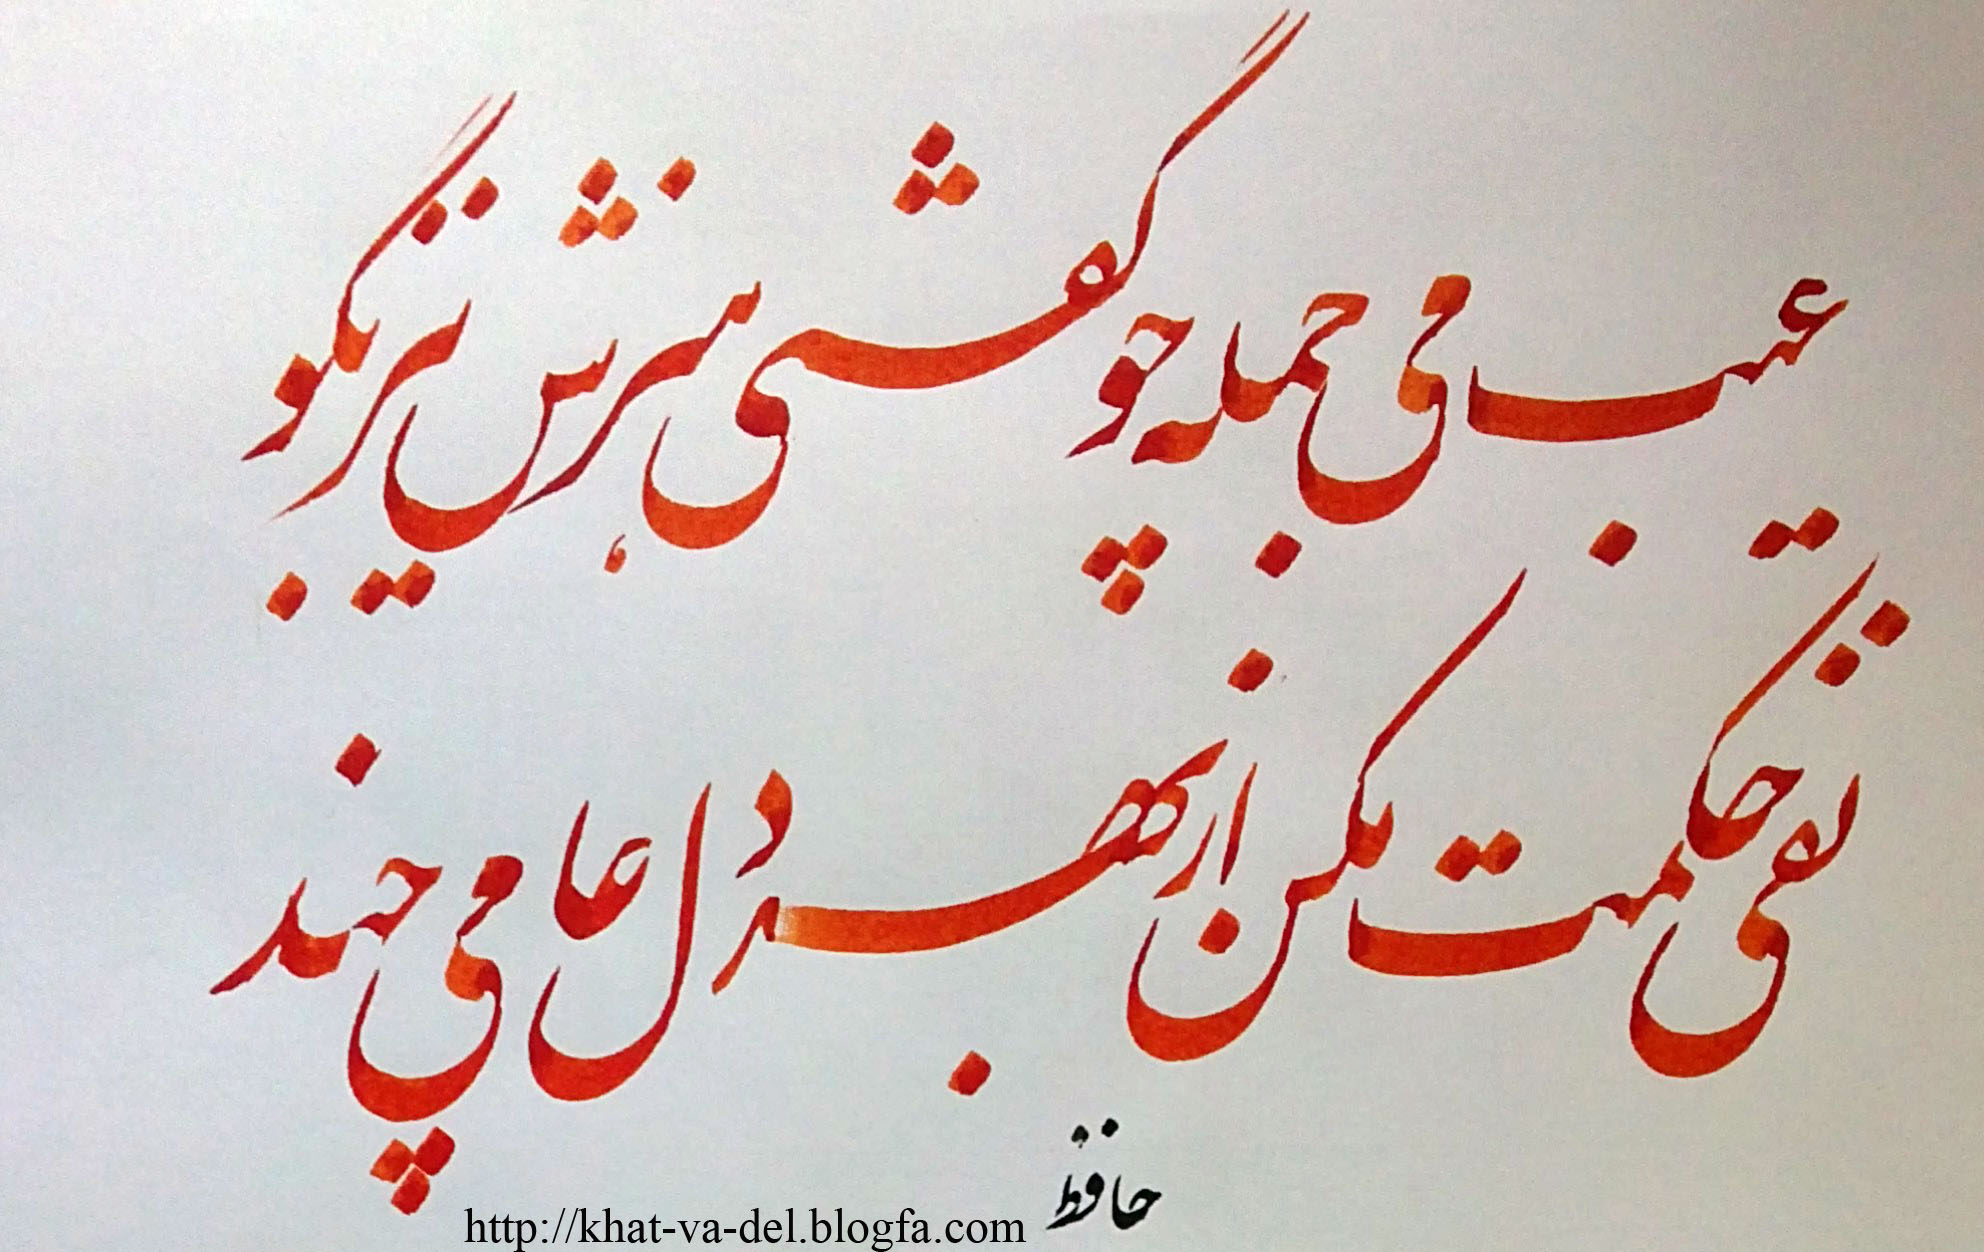 عیب می جمله چو گفتی هنرش نیز بگو
نفی حکمت مکن از بهر دل عامی چند
حافظ
http://khat-va-del.blogfa.com